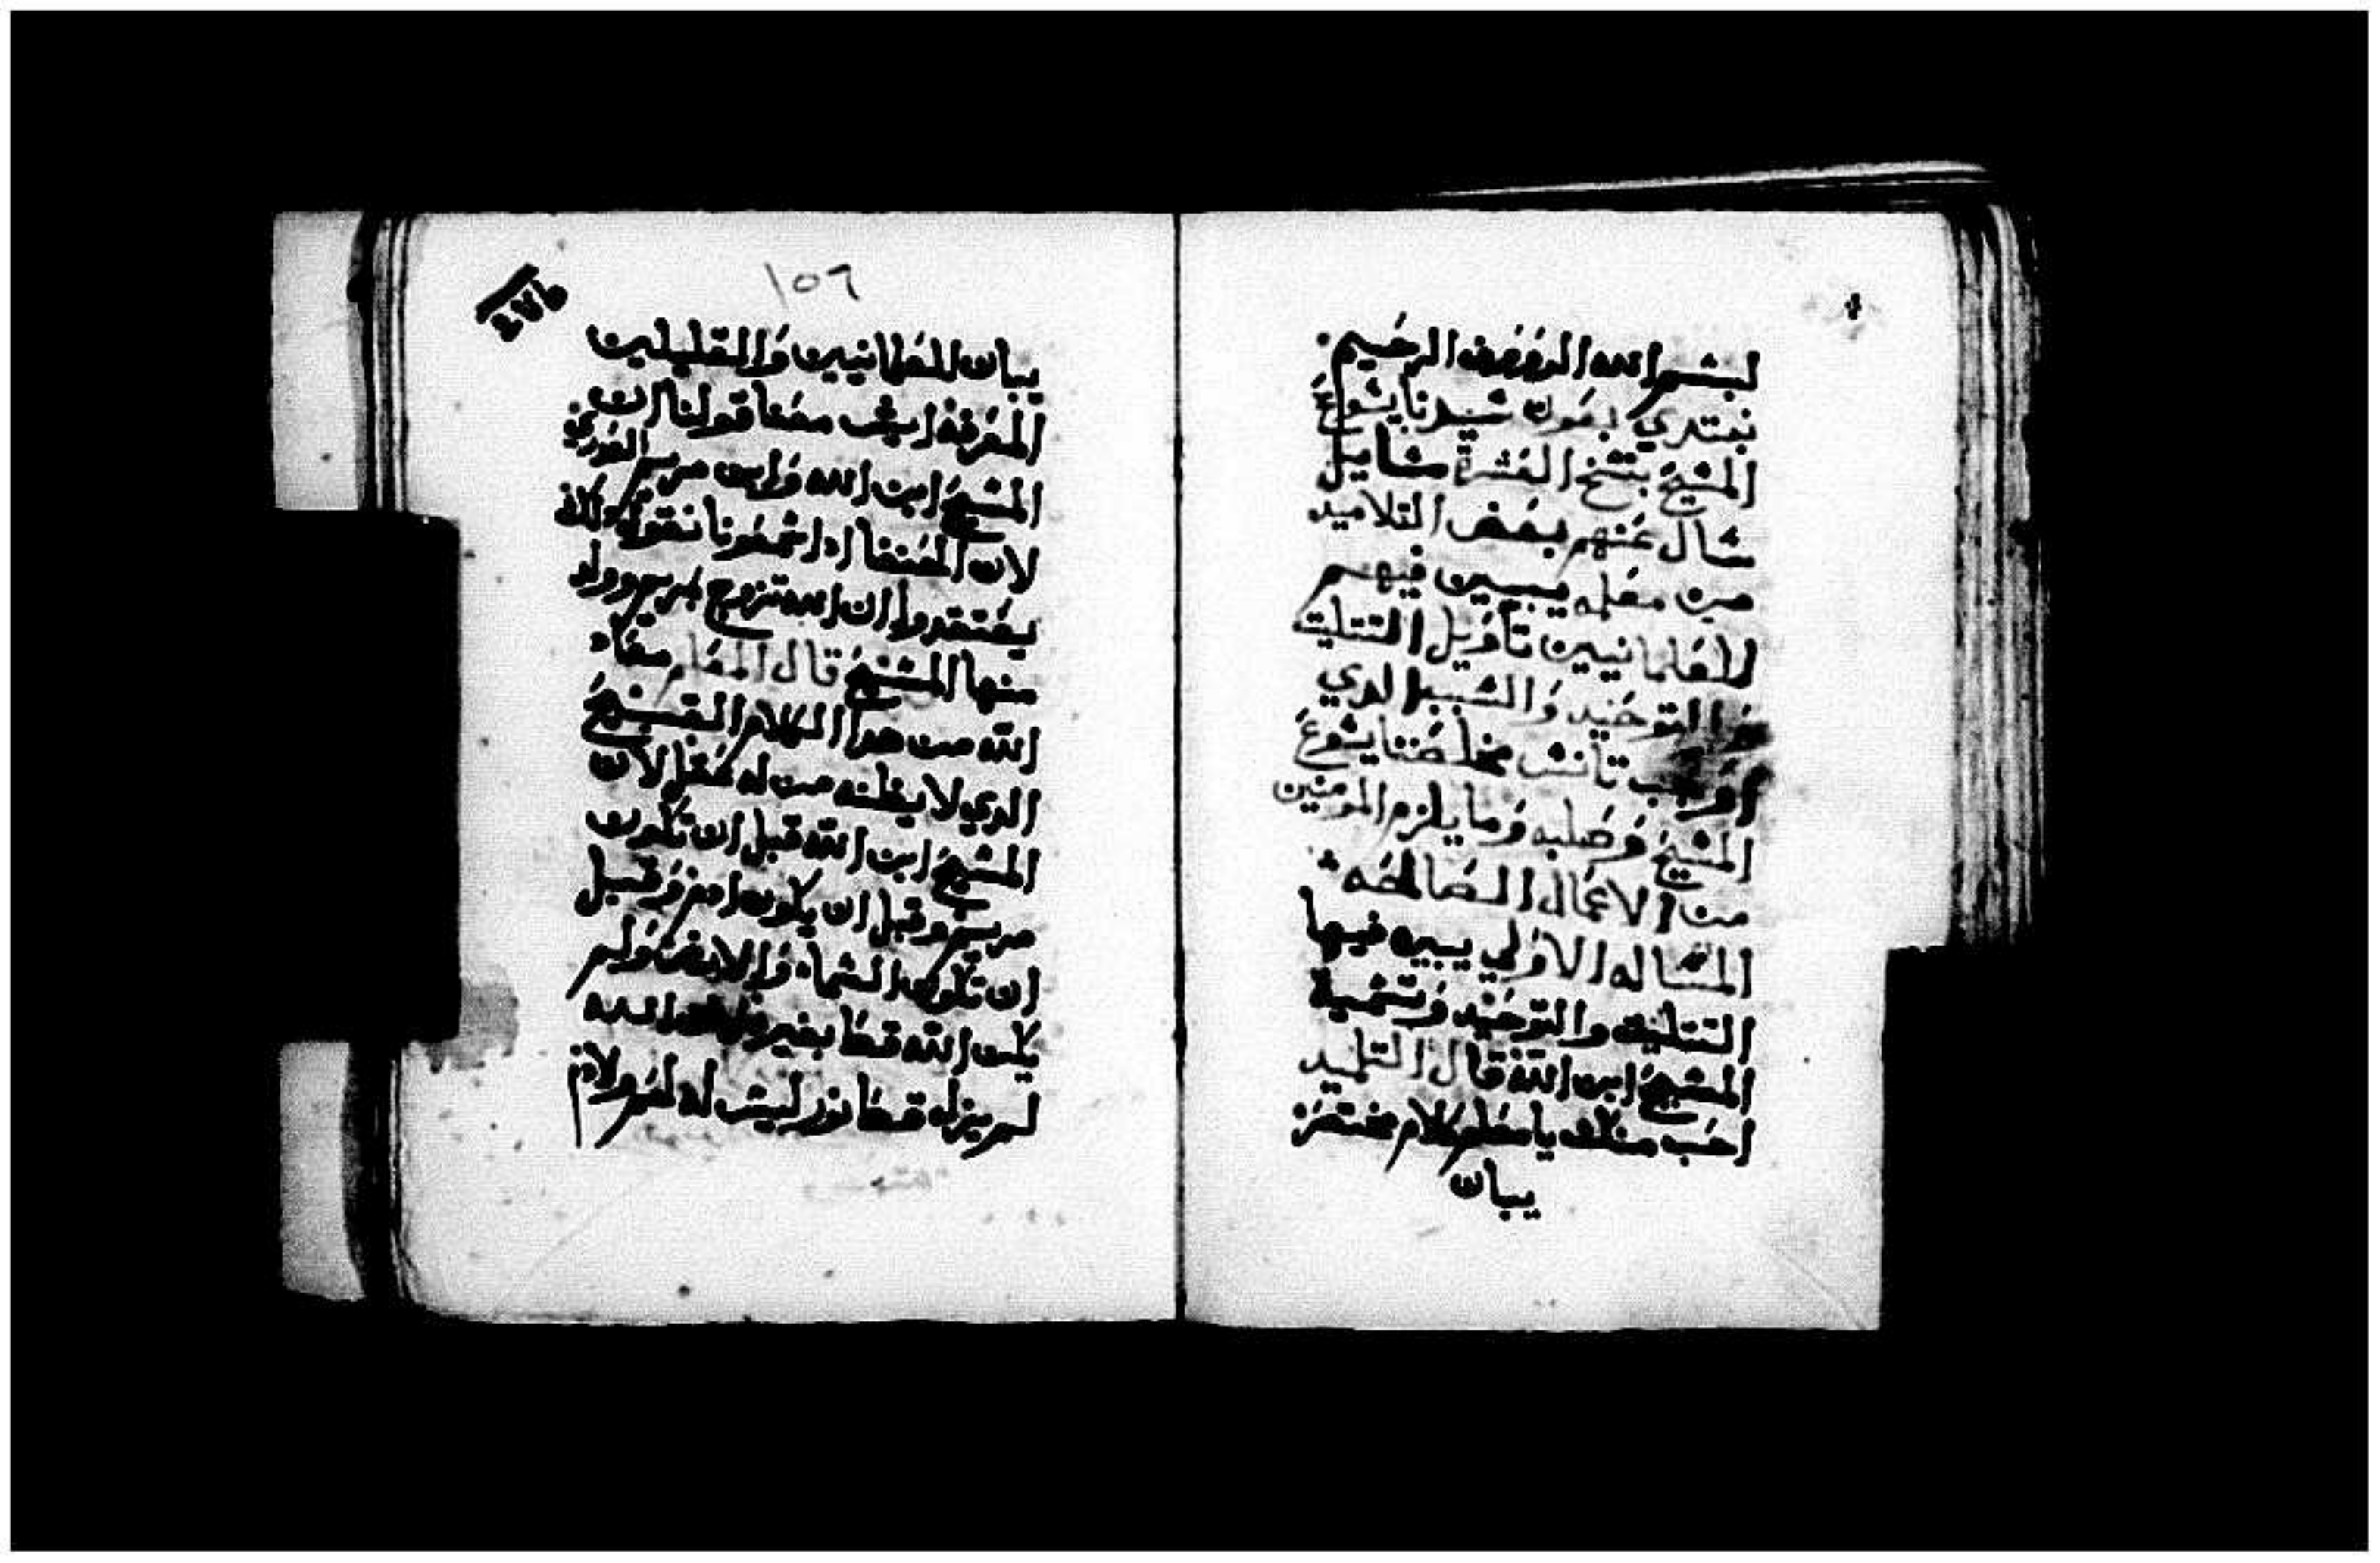 بسم الله الرووف الرحيم
نبتدي بعون شيدنا يشوع
المشيح بنشخ العشرة مشايل
شال عنهم بعض التلاميد
من معلمه يبين فيهم
للعلمانيين تاويل التتليت
والتوحيد والشبب الدي
اوجب تانش مخلصنا يشوع
المشيح وصلبه وما يلزم المومنين
من الاعمال الصالحه
المشاله الاولي يبين فيها
التتليت والتوحيد وتشمية
المشيح ابن الله قال التلميد
احب منك يا معلم كلام مختصر
يبان
١٥٦
يبان للعلمانيين والقليلين
المعرفة ايش معنا قولنا ان
المشيح ابن الله وابن مريم العدري
لان الحنفا ادا شمعونا نقول دلك
يعتقدوا ان الله تزوج بمريم وولد
منها المشيح قال المعلم معاد
الله من هدا الكلام القبيح
الدي لا يظنه من له عقل لان
المشيح ابن الله قبل ان تكون
مريم وقبل ان يكون ادم وقبل
ان تكون الشماء والارض ولم
يكن الله قط بغير ولد الله
لم يزل قط نور ليش له لحم ولا دم